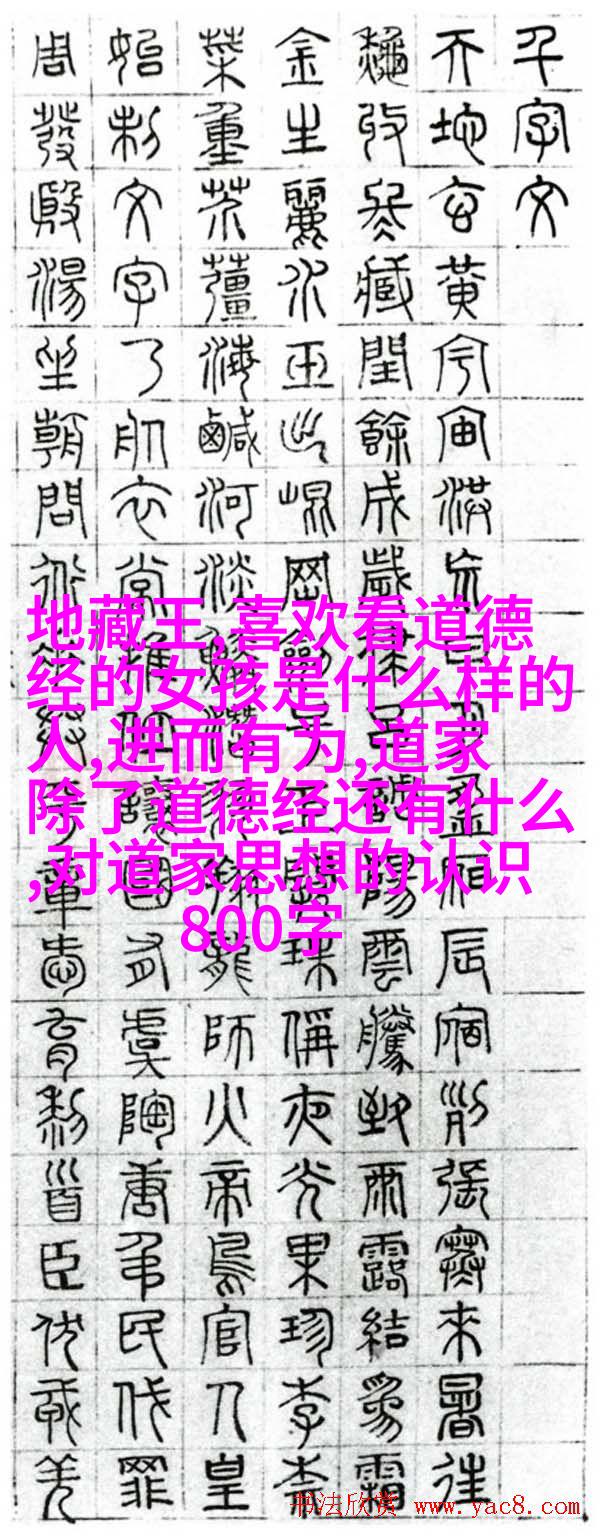 千字文
天地玄黃宇宙洪荒日月盈昃辰宿列張寒來暑往
秋收冬藏閏餘成歲律呂調陽雲騰致雨露結為霜
金生麗水玉出崑岡劍號巨闕珠稱夜光果珍李柰
菜重芥薑海鹹河淡鱗潛羽翔龍師火帝鳥官人皇
始制文字乃服衣裳推位讓國有虞陶唐弔民伐罪
周發殷湯坐朝問道垂拱平章愛育黎首臣伏戎羌
地藏王,喜欢看道德
经的女孩是什么样的
人,进而有为,道家
除了道德经还有什么
,对道家思想的认识
800字
书法欣赏 www.yac8.com